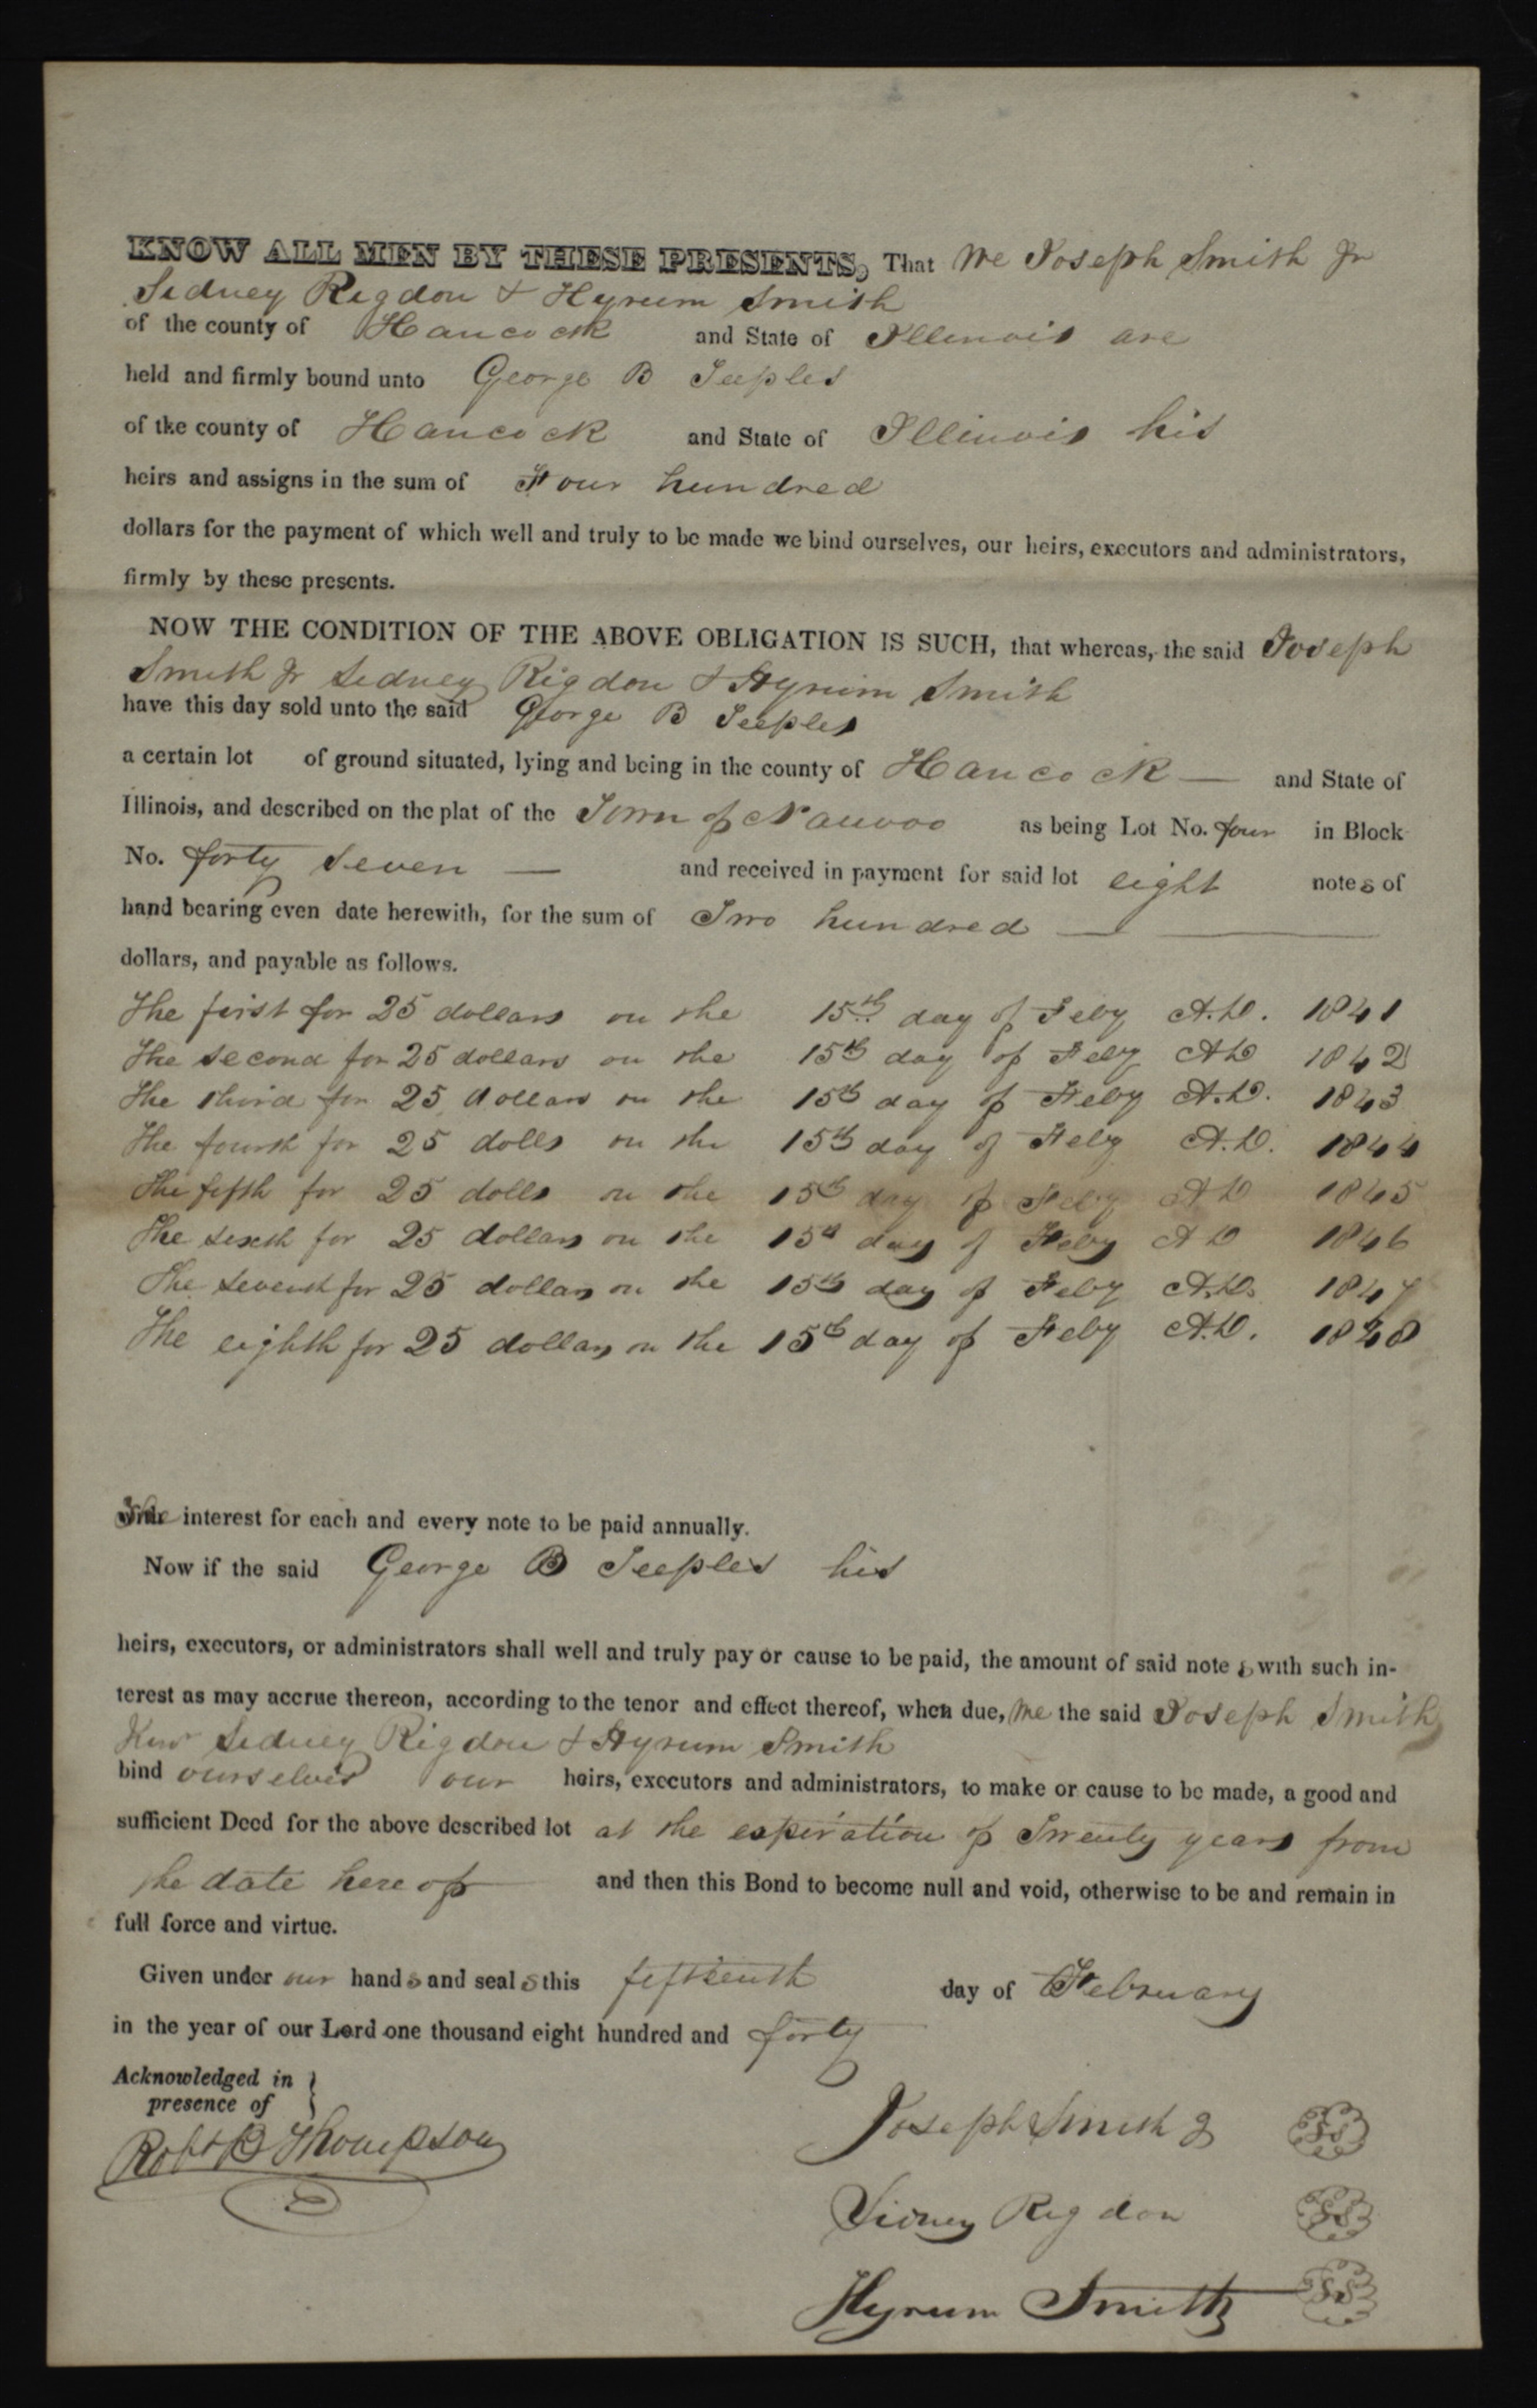 KNOW ALL MEN BY THESE PRESENTS, That We Joseph Smith Jr
Sidney Rigdon & Hyrum Smith
of the county of Hancock and State of Illinois are
held and firmly bound unto George B Teeples
of the county of Hancock and State of Illinois his
heirs and assigns in the sum of Four hundred
dollars for the payment of which well and truly to be made we bind ourselves, our heirs, executors and administrators,
firmly by these presents.
NOW THE CONDITION OF THE ABOVE OBLIGATION IS SUCH, that whereas, the said Joseph
Smith Jr Sidney Rigdon & Hyrum Smith
have this day sold unto the said George B Teeples
a certain lot of ground situated, lying and being in the county of Hancock — and State of
Illinois, and described on the plat of the Town of Nauvoo as being Lot No. four in Block
No. forty seven — and received in payment for said lot eight notes of
hand bearing even date herewith, for the sum of Two hundred —
dollars, and payable as follows.
The first for 25 dollars on the 15th day of Feby A.D. 1841
The second for 25 dollars on the 15th day of Feby AD 1842
The third for 25 dollars on the 15th day of Feby A.D. 1843
The fourth for 25 dolls on the 15th day of Feby A.D. 1844
The fifth for 25 dolls on the 15th day of Feby AD 1845
The sixth for 25 dollars on the 15th day of Feby AD 1846
The seventh for 25 dollars on the 15th day of Feby A.D. 1847
The eighth for 25 dollars on the 15th day of Feby A.D. 1848
The interest for each and every note to be paid annually.
Now if the said George B Teeples his
heirs, executors, or administrators shall well and truly pay or cause to be paid, the amount of said note s with such in-
terest as may accrue thereon, according to the tenor and effect thereof, when due, we the said Joseph Smith
Junr Sidney Rigdon & Hyrum Smith
bind ourselves our heirs, executors and administrators, to make or cause to be made, a good and
sufficient Deed for the above described lot at the expiration of Twenty years from
the date hereof and then this Bond to become null and void, otherwise to be and remain in
full force and virtue.
Given under our hands and seals this fifteenth day of February
in the year of our Lord one thousand eight hundred and forty
Acknowledged in
presence of
Robt B Thompson
Joseph Smith Jr
Sidney Rigdon
Hyrum Smith